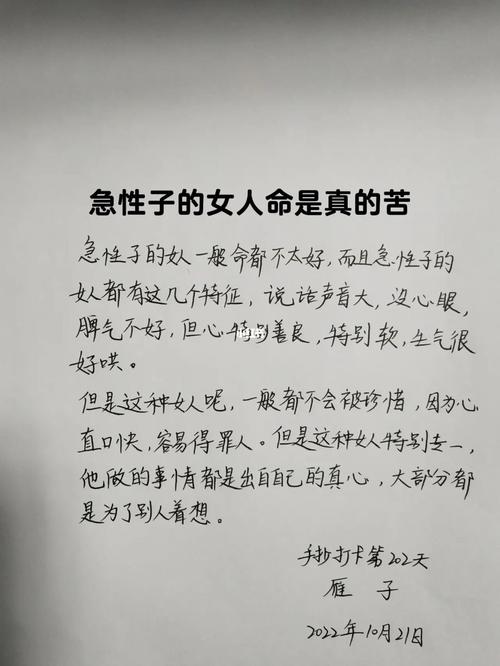 急性子的女人命是真的苦
急性子的女人一般命都不太好，而且急性子的
女人都有这几个特征，说话声音大，没心眼，
脾气不好，但心特别善良，特别软，生气很
好哄。
但是这种女人呢，一般都不会被珍惜，因为心
直口快，容易得罪人。但是这种女人特别专一，
他做的事情都是出自自己的真心，大部分都
是为了别人着想。
手抄打卡第202天
雁子
2022年10月21日